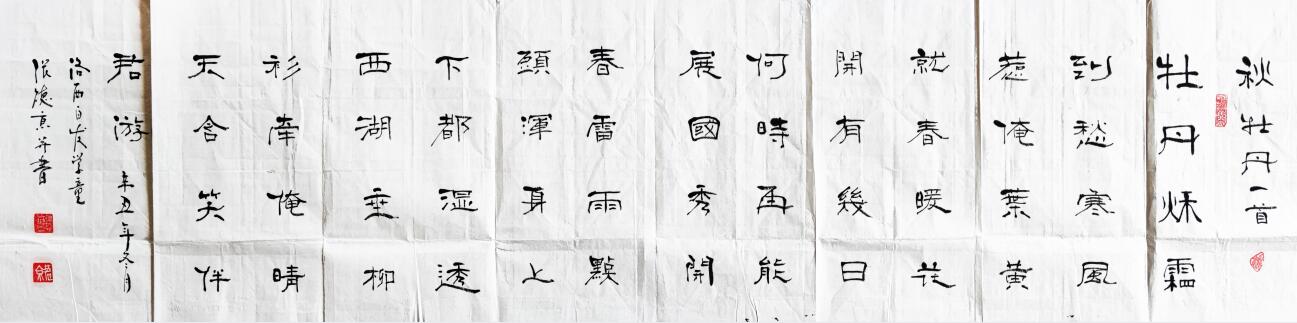 秋牡丹一首
牡丹烁霜
到愁寒風
惹俺葉黄
就春暖花
開有幾日
何時再能
展國秀開
春雷雨點
頭渾身上
下都湿透
西湖垂柳
衫南俺晴
天含笑伴
君游
辛丑年冬月
洛西白发学童
張德京并書